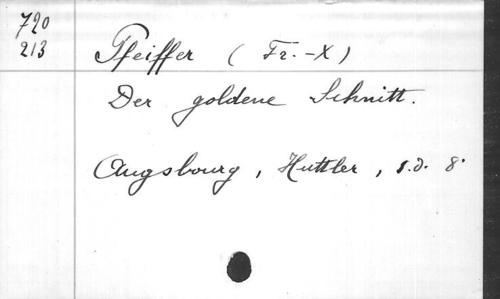 720
213
Pfeiffer ( Fr. - X )
Der goldene Schnitt.
Augsbourg , Huttler , s.d. 8°